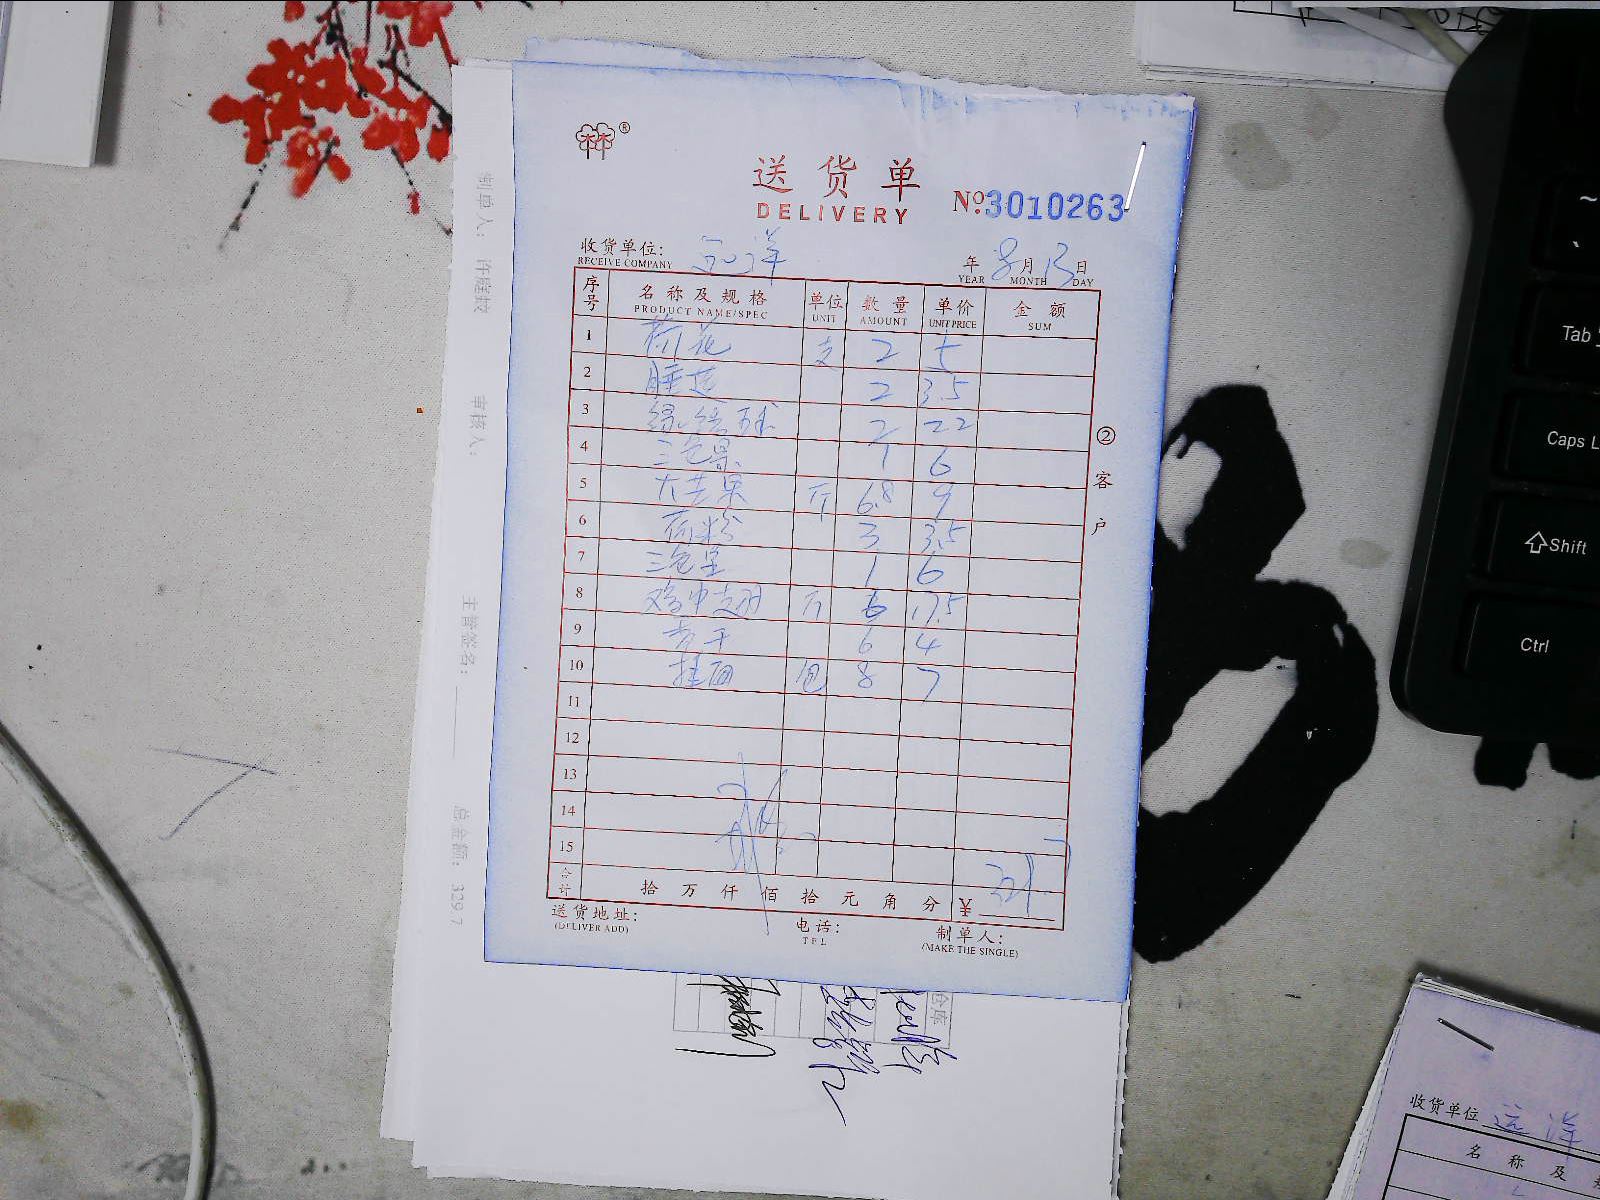 ®
送货单
DELIVERY
№3010263
收货单位: 远洋
RECEIVE COMPANY
年 8月 13日
YEAR MONTH DAY
序号 名称及规格 单位 数量 单价 金额
PRODUCT NAME/SPEC UNIT AMOUNT UNIT PRICE SUM
1 荷花 支 2 5
2 睡莲 2 3.5
3 绣球 2 22
4 三色堇 1 6
5 大芒果 斤 6.8 9
6 荷粉 3 3.5
7 三色堇 1 6
8 鸡中翅 斤 6 17.5
9 香干 6 4
10 挂面 包 8 7
11
12
13
14
15
合计 拾 万 仟 佰 拾 元 角 分 ¥
送货地址:
(DELIVER ADD)
电话:
TEL
制单人:
(MAKE THE SINGLE)
②客户
制单人:
审核人:
主管签名:
总金额: 329.7
仓库
收货单位 远洋
名 称 及
~
`
Tab
Caps L
Shift
Ctrl